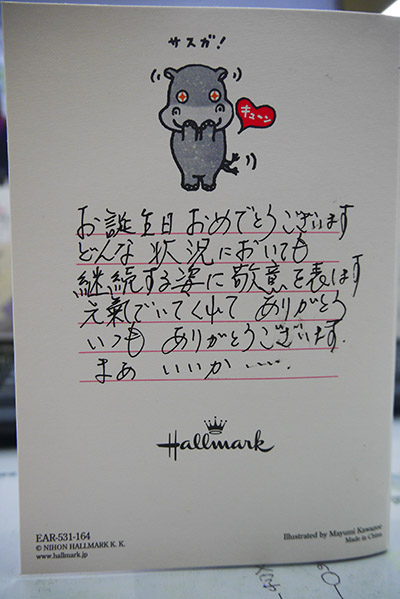 サスガ!
キューン
お誕生日 おめでとうございます
どんな 状況においても
継続する姿に敬意を表します
元氣でいてくれて ありがとう
いつも ありがとうございます.
まぁ いいか…….
Hallmark
EAR-531-164
© NIHON HALLMARK K. K.
www.hallmark.jp
Illustrated by Mayumi Kawazoe
Made in China